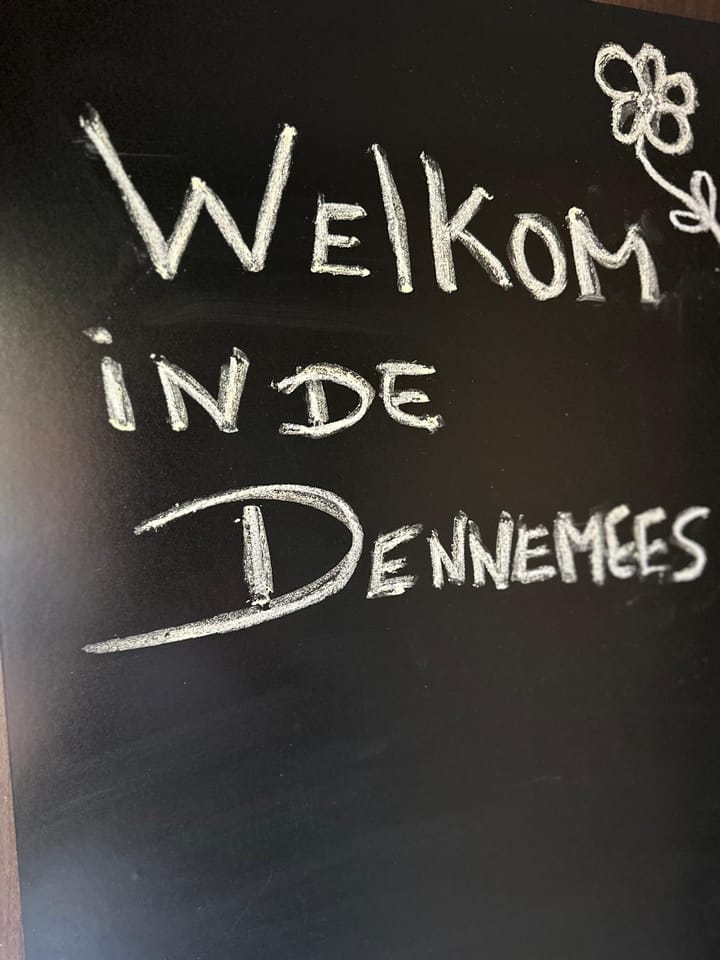 WElKOM
iN DE
DENNEMEES